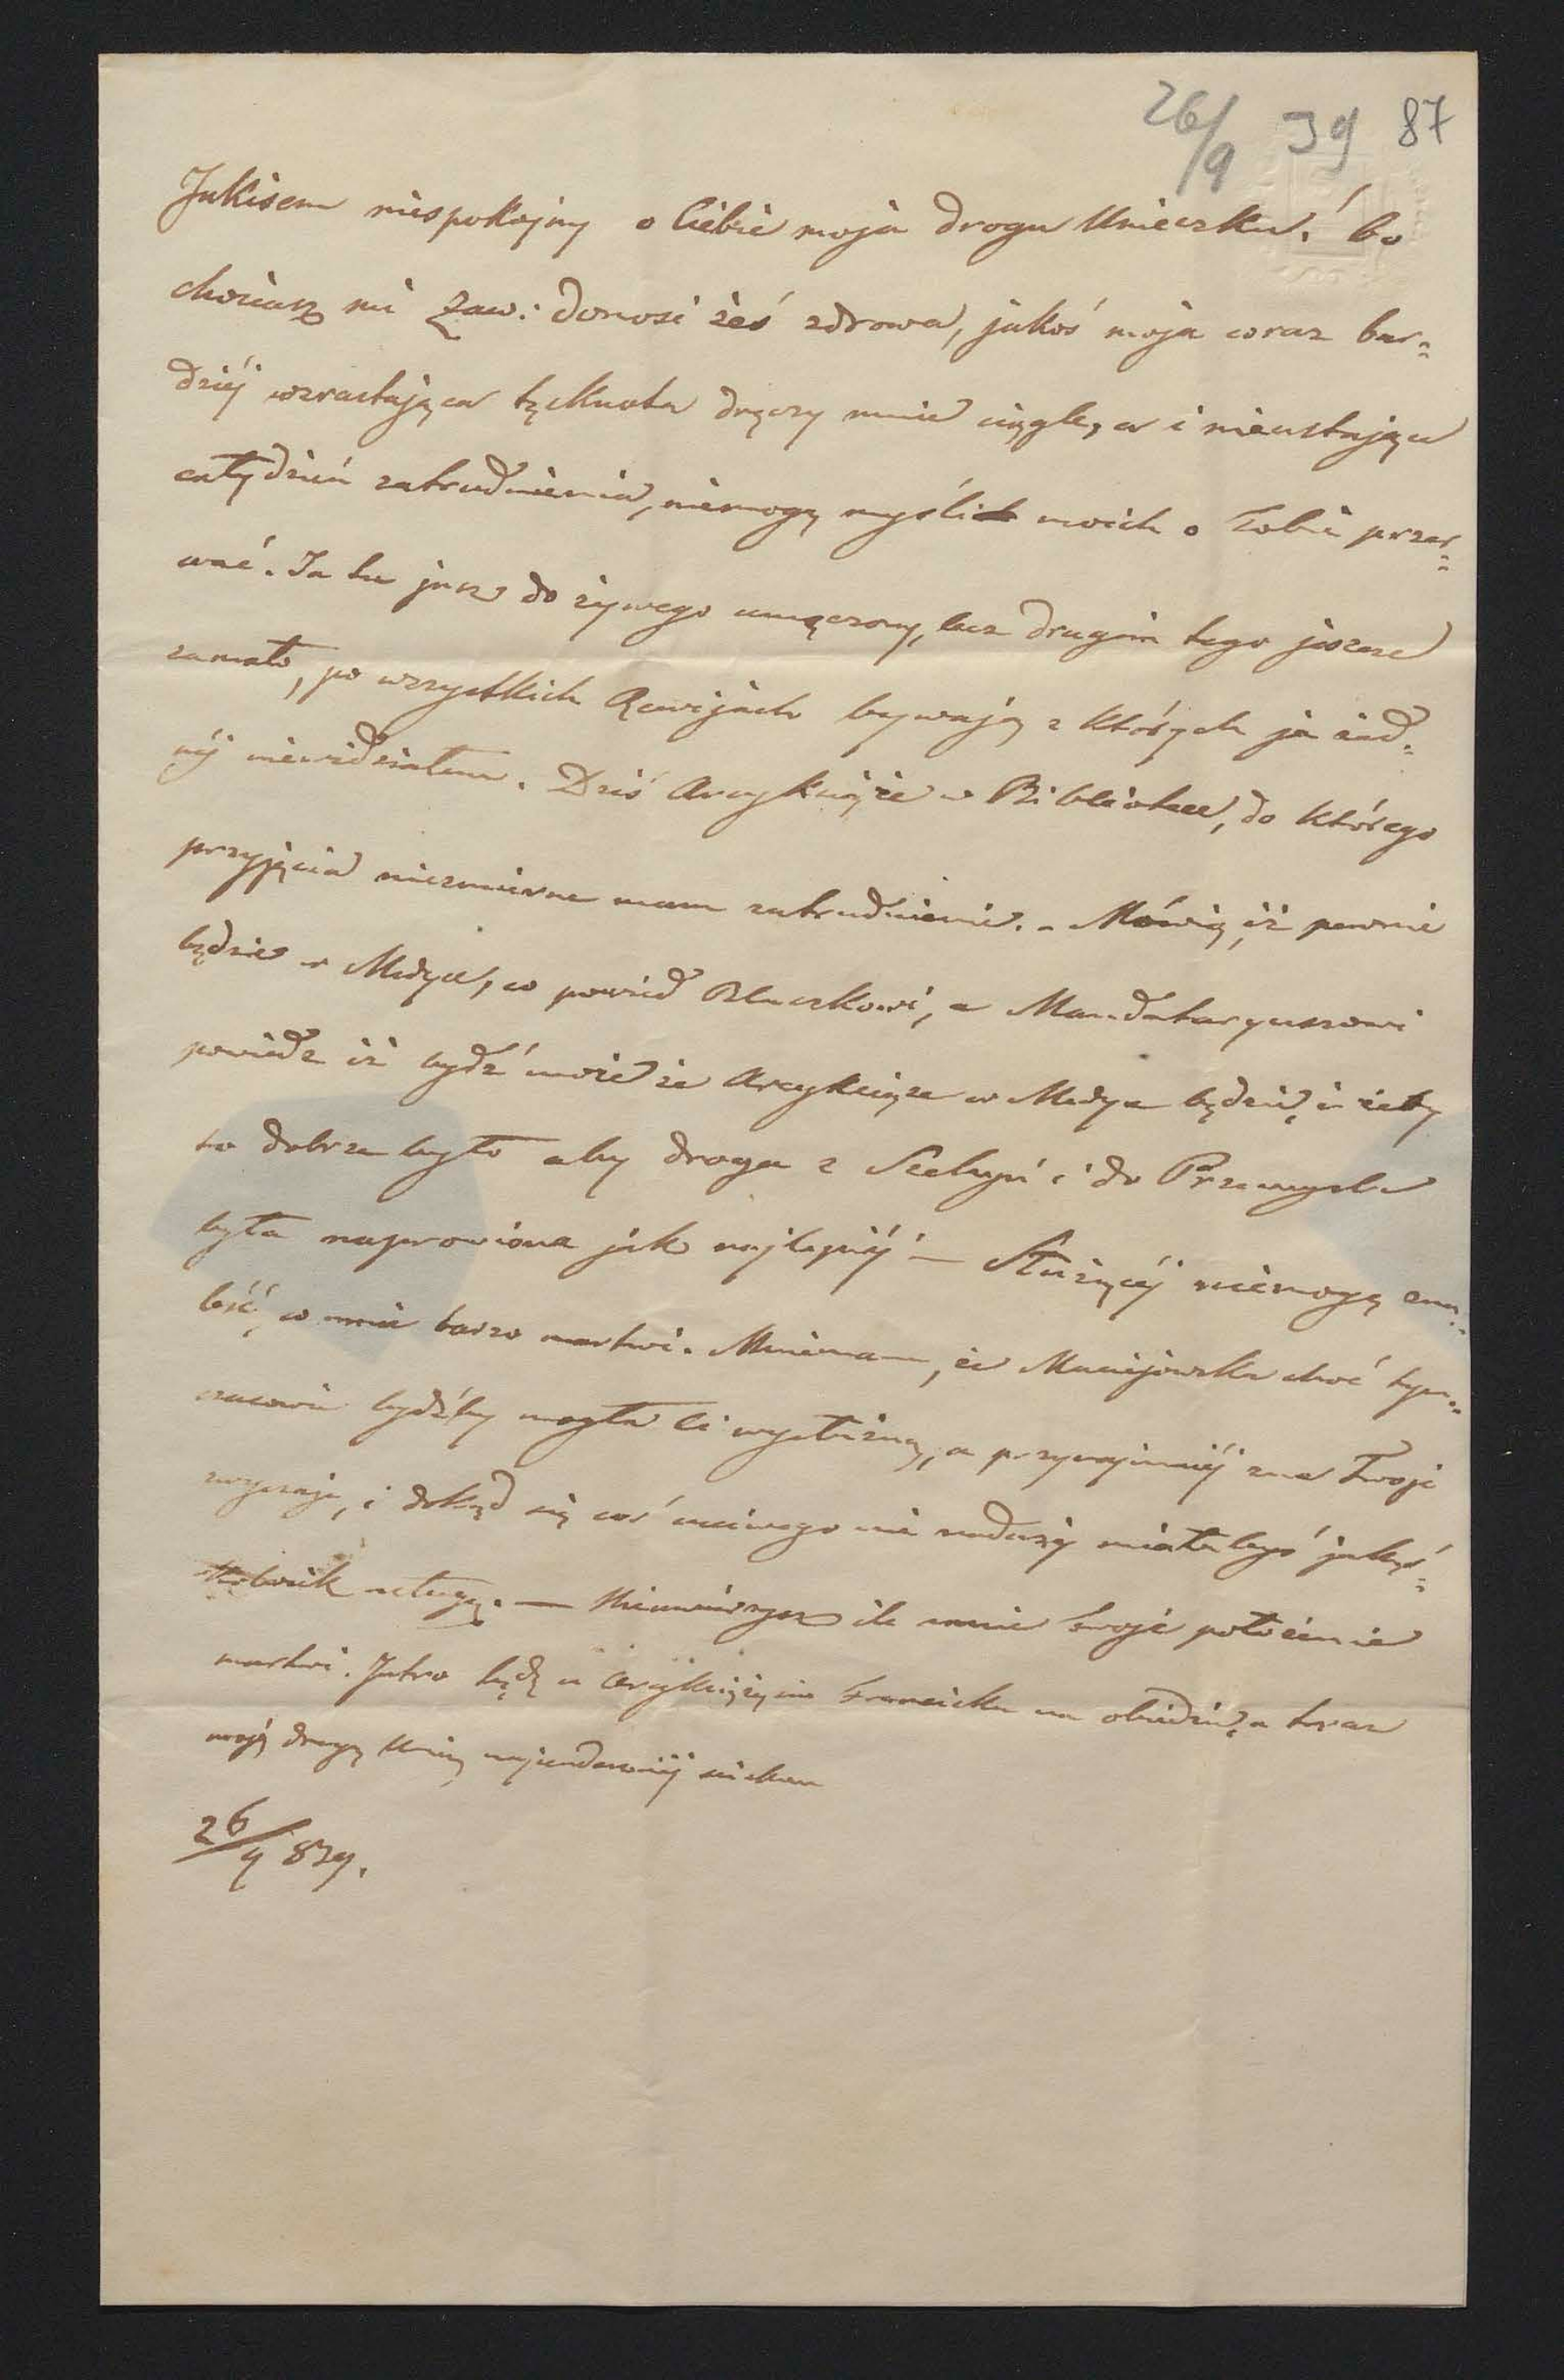 26/9 39 87
Jakisem niespokojny o Ciebie moja droga Unieczku! bo
chociasz mi Zaw: donosi żeś zdrowa, jakoś moja coraz bar=
dziéj wzrastająca tęsknota dręczy mnie ciągle, a i nieustające
cały dzień zatrudnienia, niemogą myślich moich o Tobie przer=
wać. Ja tu jusz do żywego umęczony, lecz drugim tego jeszcze
zamało, po wszystkich Rewijach bywają z których ja żad=
néj niewidziałem. Dziś Arcyksiąże w Bibliotece, do którego
przyjęcia niezmierne mam zatrudnienie. - Mówią, iż pewnie
będzie w Medyce, co powiedz Blaczkowi, a Mandataryuszowi
powiedz iż bydź może że Arcyksiąże w Medyce będzie, i żeby
to dobrze było aby droga z Szechyń i do Przemyśla
była naprawiona jak najlepiéj - Służącéj niemogę zna=
leść, co mnie barzo martwi. Mniemam, że Maciejowska choć tym=
czasowie bydźby mogła Ci wysłużną, a przynajmniéj zna Twoje
zwyczaje, i dokąd się coś uczciwego nie nadarzy miałabyś jakąś=
kolwiek usługę. — Nieuwierzysz ile mnie twoje położenie
martwi. Jutro będę u Arcyksięcia Franciszka na obiedzie, a teraz
moją drogą Unię najserdeczniéj ściskam
26/9 839.